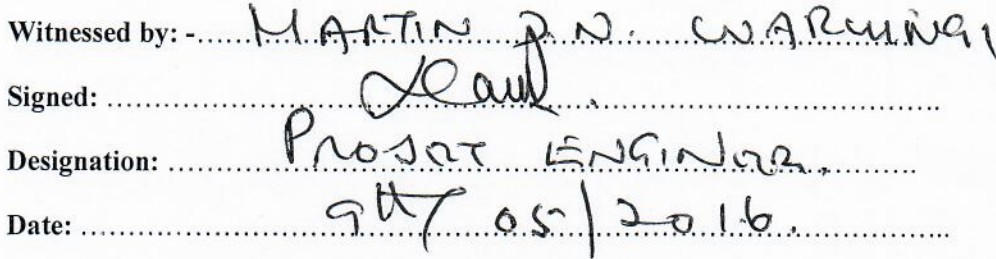 Witnessed by: - MARTIN P.N.
Signed:
Designation: PROJECT ENGINEER.
Date: 9th / 05 / 2016.